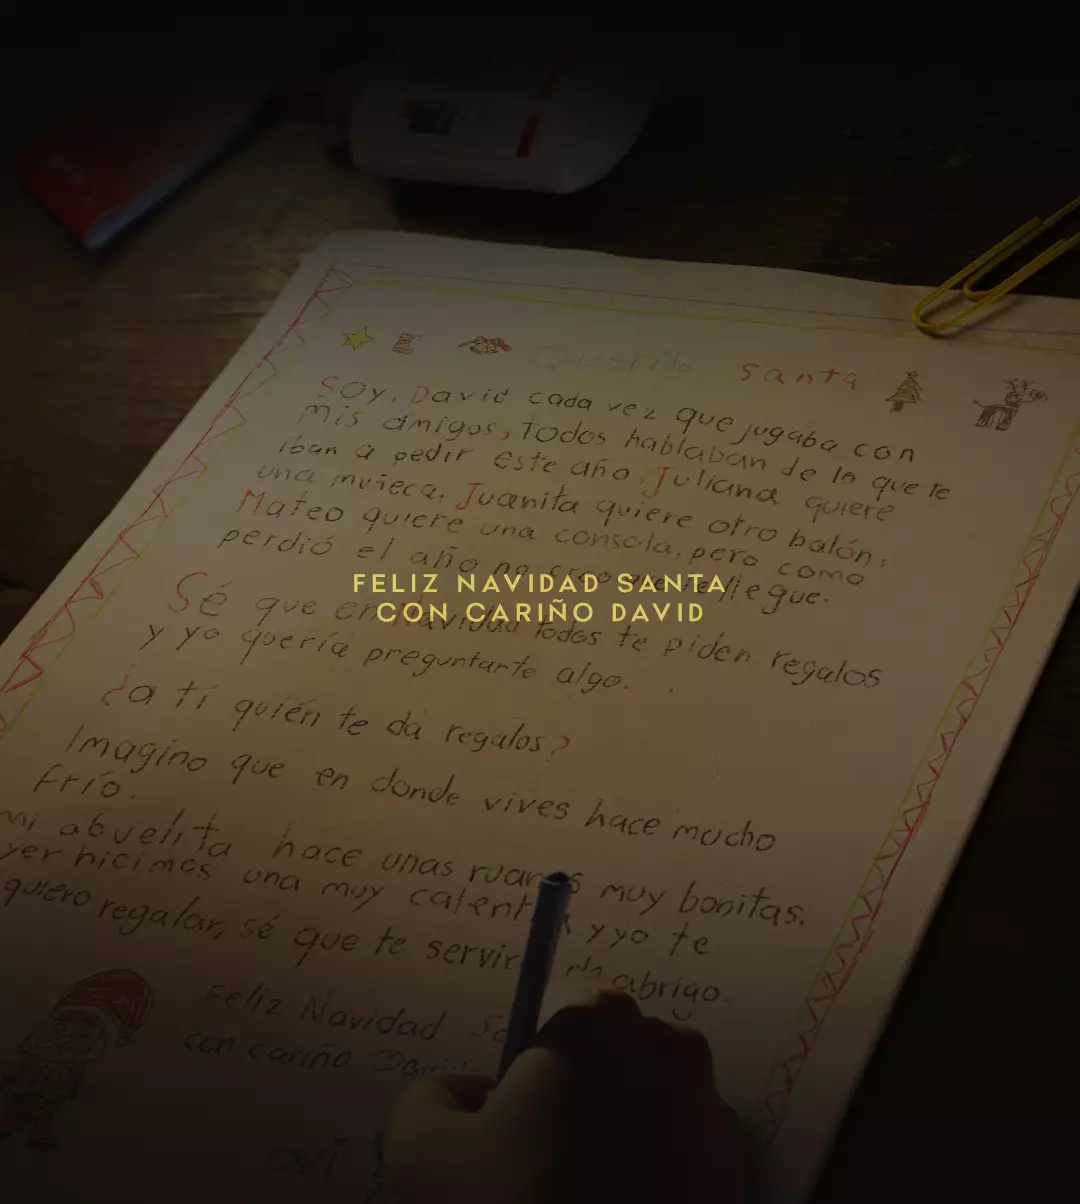 Querido santa
Soy, David cada vez que jugaba con
mis amigos, todos hablaban de lo que te
iban a pedir este año, Juliana quiere
una muñeca, Juanita quiere otro balón,
Mateo quiere una consola, pero como
perdió el año no creo que le llegue.
FELIZ NAVIDAD SANTA
CON CARIÑO DAVID
Sé que en Navidad todos te piden regalos
y yo quería preguntarte algo.
¿a ti quién te da regalos?
Imagino que en donde vives hace mucho
frío.
mi abuelita hace unas ruanas muy bonitas,
yer hicimos una muy calent y yo te
quiero regalar, sé que te servir de abrigo.
Feliz Navidad Sa
con cariño David